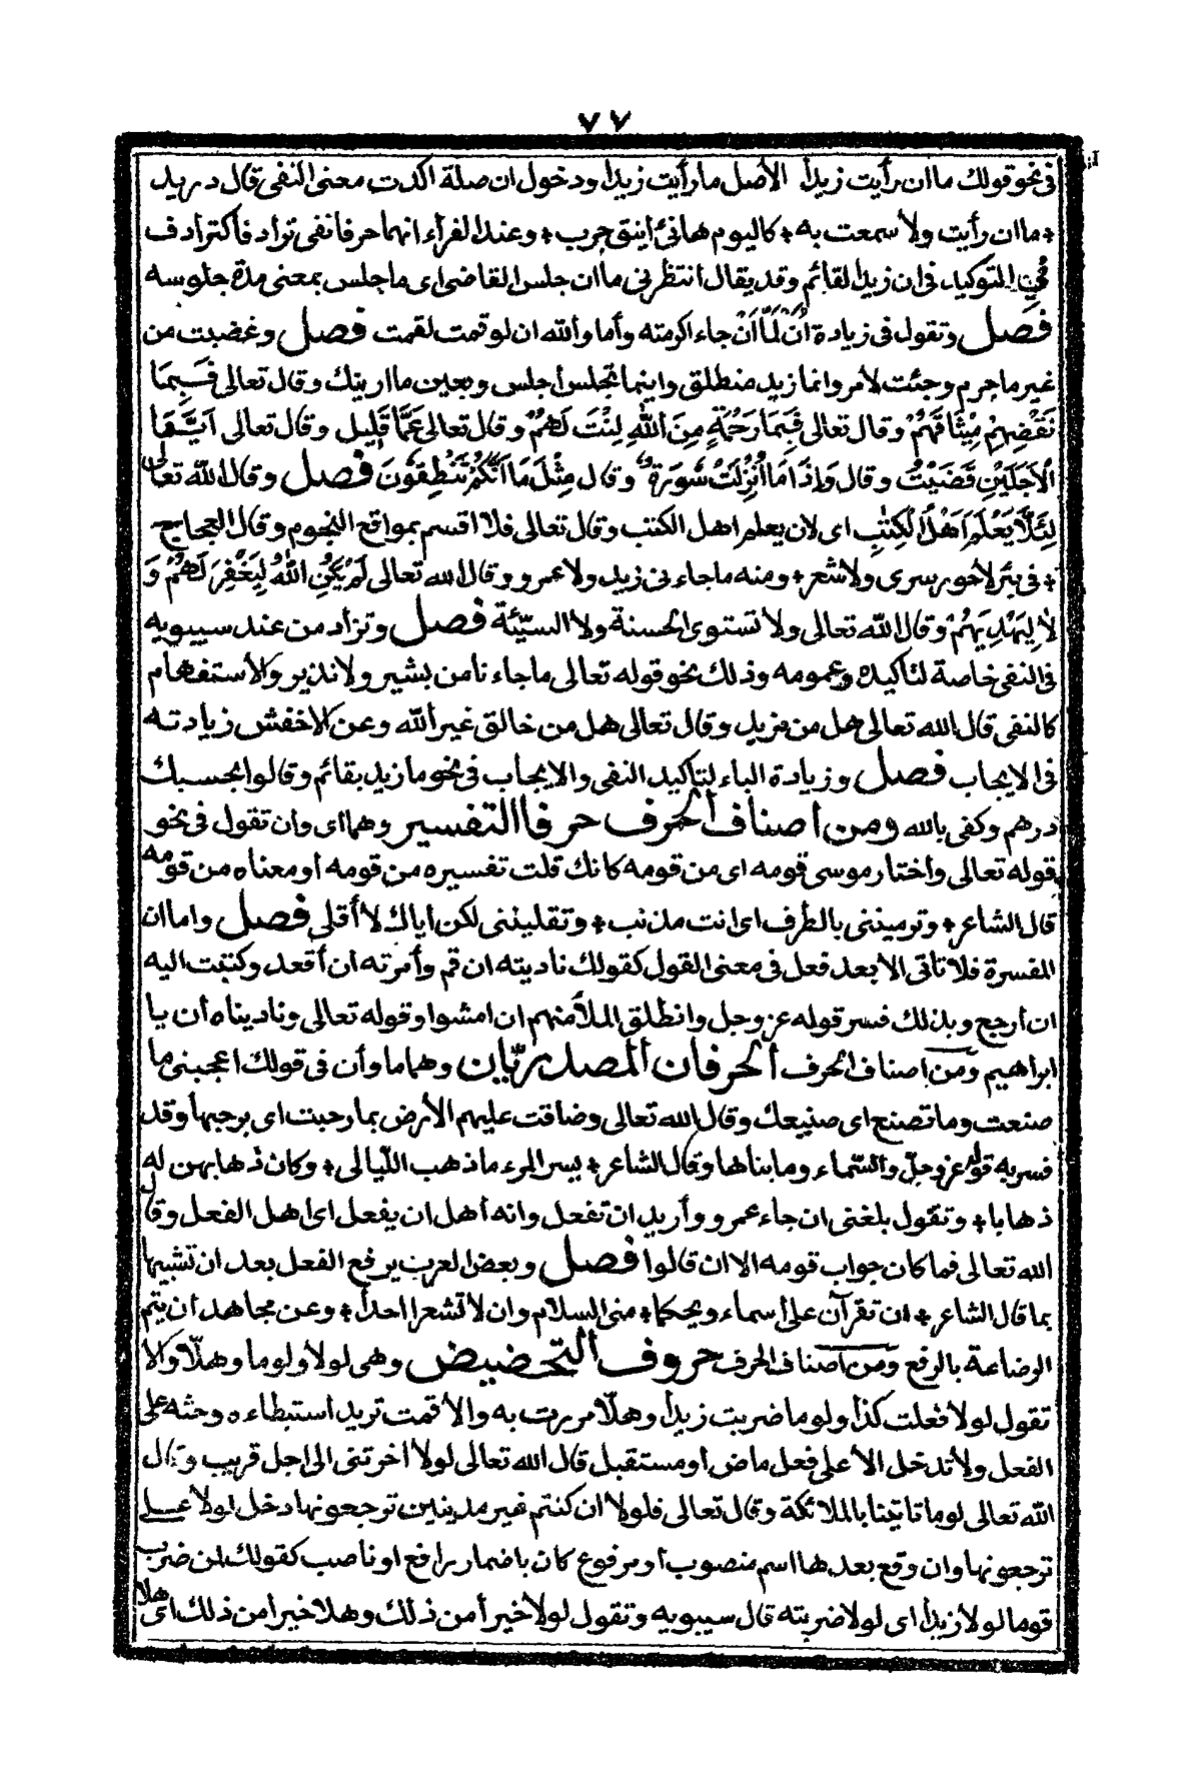 ٧٧
فى نحو قولك ما ان رأيت زيدا الأصل ما رأيت زيدا ودخول ان صلة اكدت معنى النفى قال دريد
٭ ما ان رأيت ولا سمعت به ٭ كاليوم هانئ اينق جرب ٭ وعند الفراء انهما حرفا نفى ترادفا كترادف
التوكيد فى ان زيدا لقائم وقد يقال انتظرنى ما ان جلس القاضى اى ما جلس بمعنى مدة جلوسه
فصل وتقول فى زيادة أن لما أن جاء اكرمته وأما والله ان لو قمت لقمت فصل وغضبت من
غير ما جرم وجئت لأمر وانما زيد منطلق واينما تجلس اجلس وبعين ما ارينك وقال تعالى فَبِمَا
نَقْضِهِمْ مِيْثَاقَهُمْ وقال تعالى فَبِمَا رَحْمَةٍ مِنَ اللهِ لِنْتَ لَهُمْ وقال تعالى عَمَّا قَلِيل وقال تعالى اَيَّمَا
الْاَجَلَيْنِ قَضَيْتُ وقال وَاِذَا مَا اُنْزِلَتْ سُوْرَةٌ وقال مِثْلَ مَا اَنَّكُمْ تَنْطِقُوْنَ فصل وقال الله تعالى
لِئَلَّا يَعْلَمَ اَهْلُ الْكِتٰبِ اى لان يعلم اهل الكتب وقال تعالى فلا اقسم بمواقع النجوم وقال العجاج
٭ فى بئر لا حور سرى ولا شعر ٭ ومنه ما جاءنى زيد ولا عمرو وقال الله تعالى لَمْ يَكُنِ اللهُ لِيَغْفِرَ لَهُمْ وَ
لَا لِيَهْدِيَهُمْ وقال الله تعالى ولا تستوى الحسنة ولا السيّئة فصل وتزاد من عند سيبويه
فى النفى خاصة لتاكيده وعمومه وذلك نحو قوله تعالى ما جاءنا من بشير ولا نذير والاستفهام
كالنفى قال الله تعالى هل من مزيد وقال تعالى هل من خالق غير الله وعن الاخفش زيادته
فى الايجاب فصل وزيادة الباء لتاكيد النفى والايجاب فى نحو ما زيد بقائم وقالوا بحسبك
درهم وكفى بالله ومن اصناف الحرف حرفا التفسير وهما اى وان تقول فى نحو
قوله تعالى واختار موسى قومه اى من قومه كانك قلت تفسيره من قومه او معناه من قومه
قال الشاعر ٭ وترمينني بالطرف اى انت مذنب ٭ وتقلينني لكن اياك لا أقلي فصل واما ان
المفسرة فلا تأتى الا بعد فعل فى معنى القول كقولك ناديته ان قم وأمرته ان أقعد وكتبت اليه
ان ارجع وبذلك فسر قوله عز وجل وانطلق الملأ منهم ان امشوا وقوله تعالى وناديناه أن يا
ابراهيم ومن اصناف الحرف الحرفان المصدريّان وهما ما وأن فى قولك اعجبنى ما
صنعت وما تصنع اى صنيعك وقال الله تعالى وضاقت عليهم الأرض بما رحبت اى برحبها وقد
فسر به قوله عز وجلّ والسّماء وما بناها وقال الشاعر ٭ يسر المرء ما ذهب اللّيالى ٭ وكان ذهابهن له
ذهابا ٭ وتقول بلغنى ان جاء عمرو وأريد ان تفعل وانه أهل ان يفعل اى اهل الفعل وقال
الله تعالى فما كان جواب قومه الا ان قالوا فصل وبعض العرب يرفع الفعل بعد ان تشبيها
بما قال الشاعر ٭ ان تقرآن على أسماء ويحكما ٭ منى السلام وان لا تشعرا احدا ٭ وعن مجاهد ان يتم
الرضاعة بالرفع ومن اصناف الحرف حروف التحضيض وهى لولا ولوما وهلّا والا
تقول لولا فعلت كذا ولوما ضربت زيدا وهلّا مررت به والا قمت تريد استبطاءه وحثه على
الفعل ولا تدخل الا على فعل ماض او مستقبل قال الله تعالى لولا اخرتنى الى اجل قريب وقال
الله تعالى لوما تاتينا بالملائكة وقال تعالى فلولا ان كنتم غير مدينين ترجعونها دخل لولا على
ترجعونها وان وقع بعدها اسم منصوب او مرفوع كان باضمار رافع او ناصب كقولك لمن ضرب
قوما لولا زيدا اى لولا ضربته قال سيبويه وتقول لولا خيرا من ذلك وهلا خيرا من ذلك اى هلا